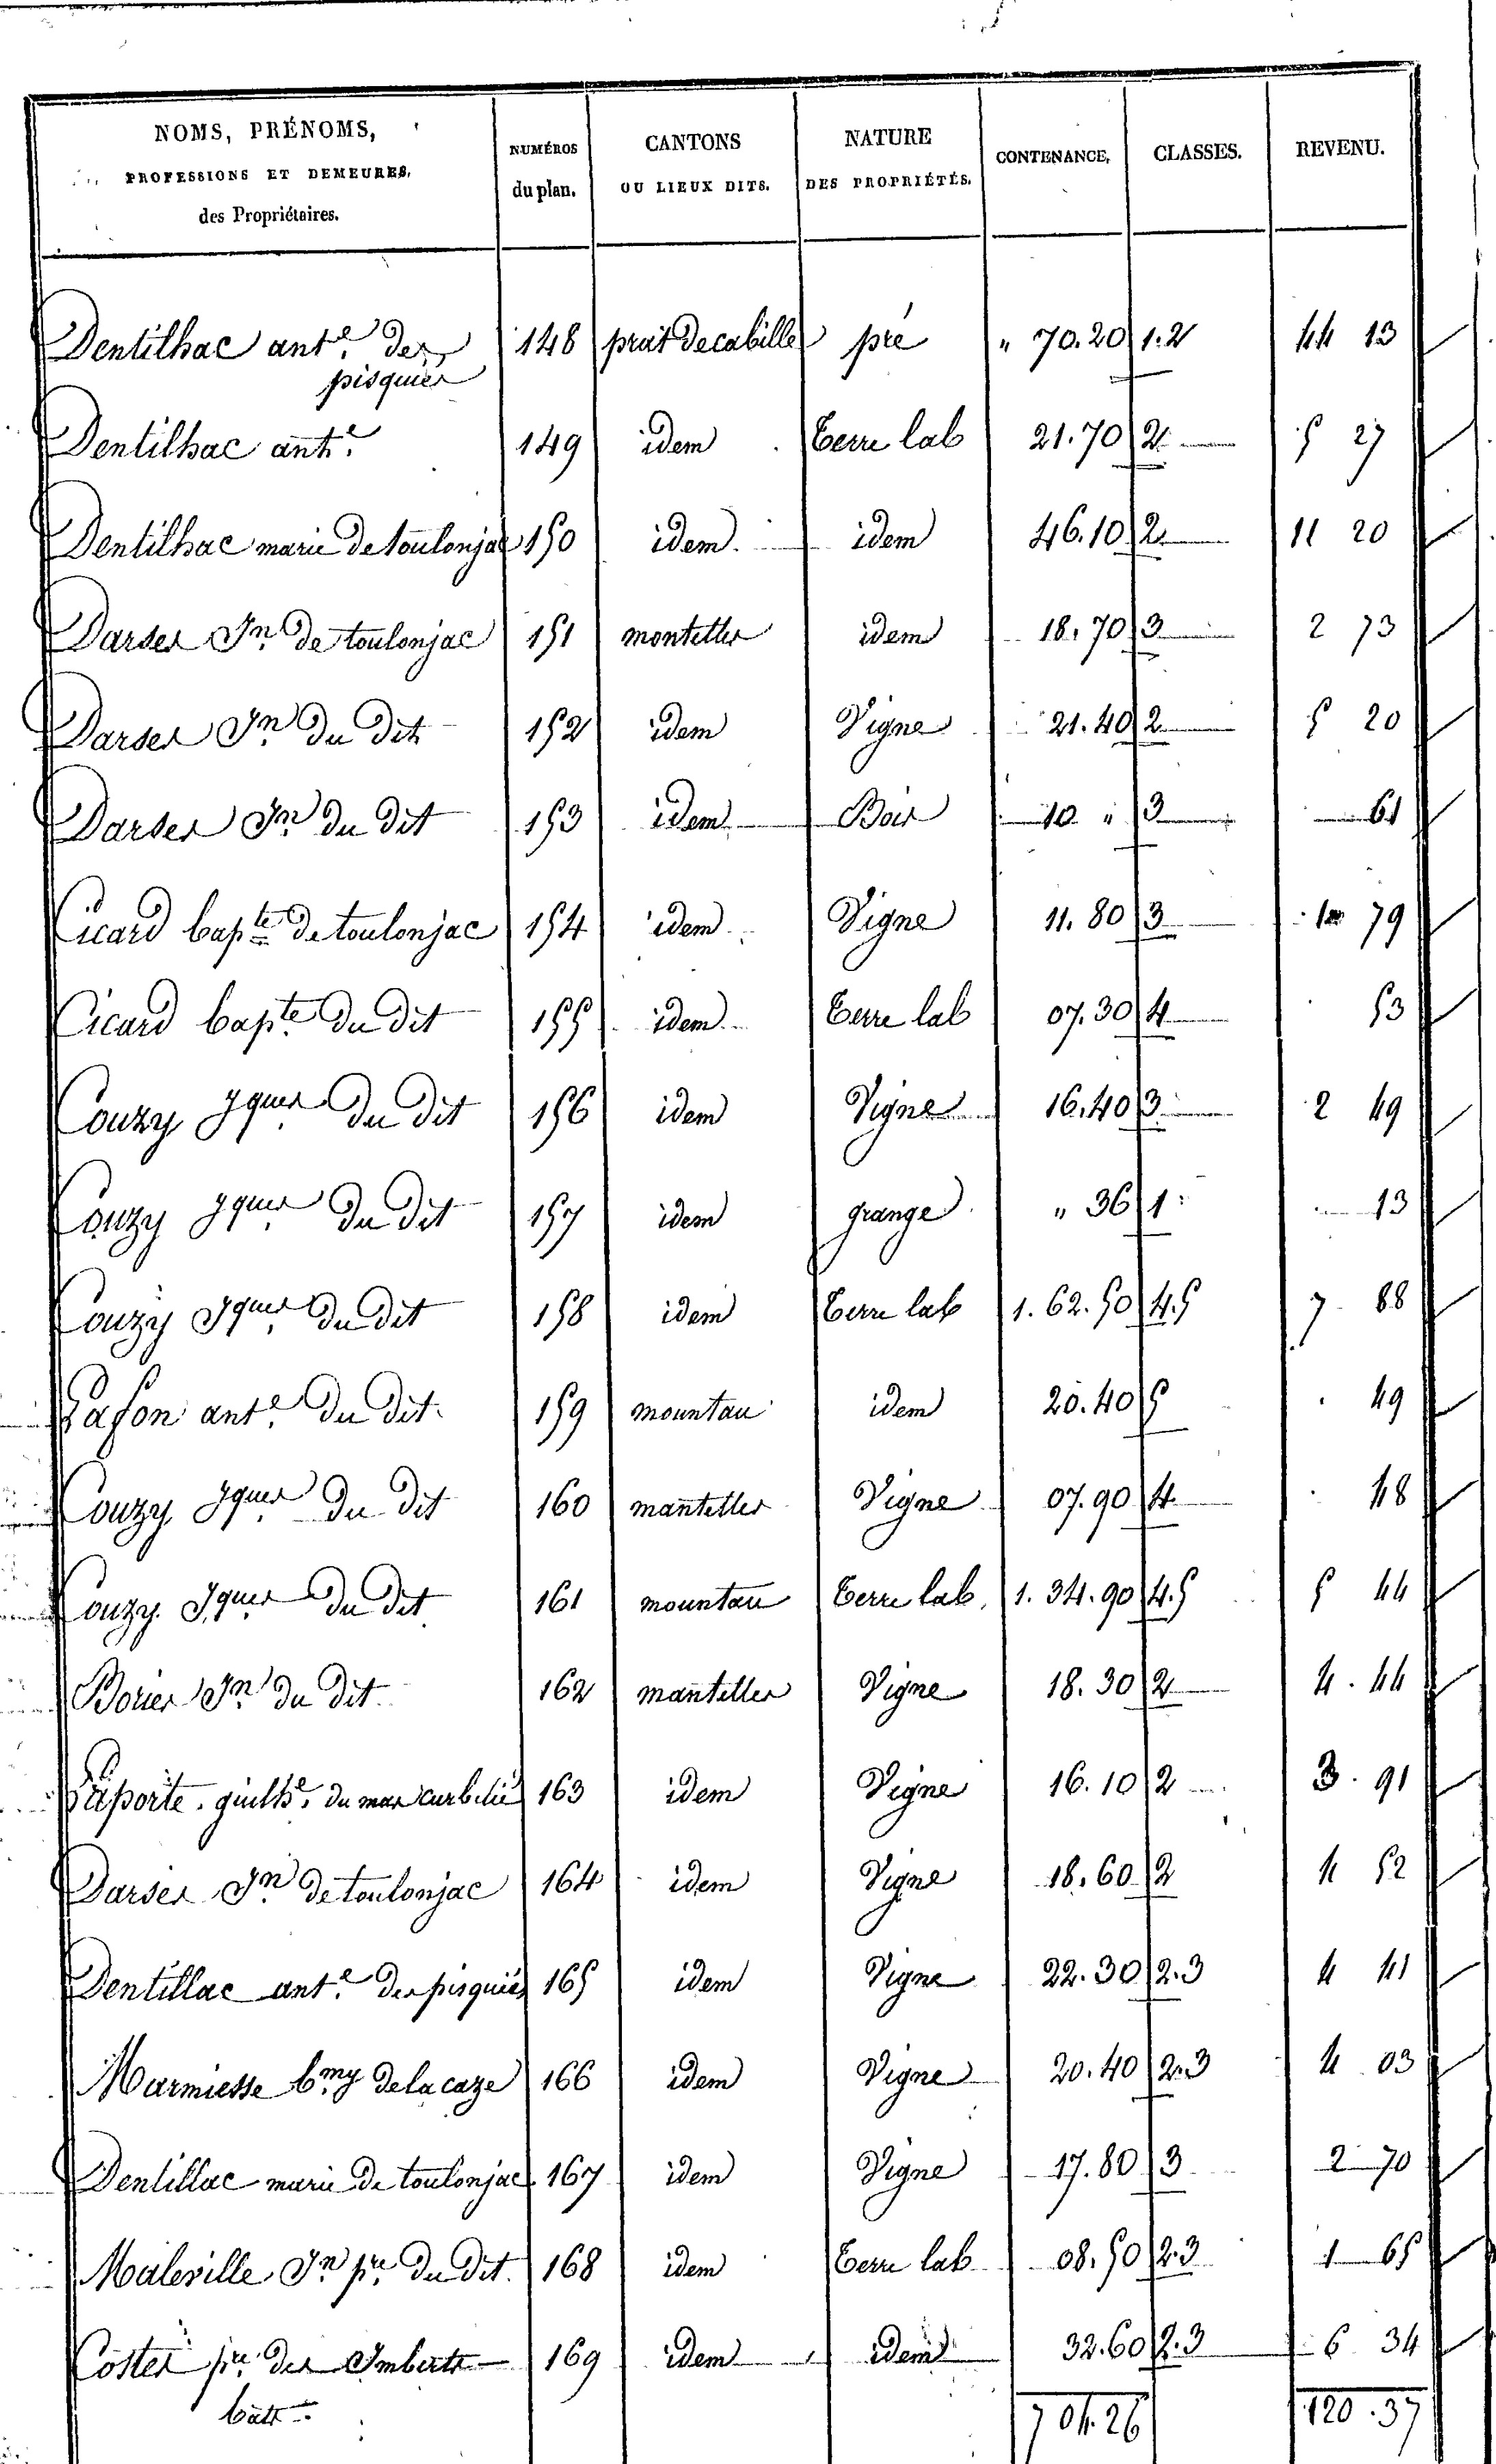 NOMS, PRÉNOMS, PROFESSIONS ET DEMEURES, des Propriétaires. NUMÉROS du plan. CANTONS OU LIEUX DITS. NATURE DES PROPRIÉTÉS. CONTENANCE, CLASSES. REVENU.
Dentilhac ant.e des 148 prat de cabille pré " 70.20 1.2 44 13
pisquier
Dentilhac ant.e 149 idem terre lab 21.70 2 5 27
Dentilhac marie de toulonjac 150 idem idem 46.10 2 11 20
Darses Jn de toulonjac 151 monteller idem 18.70 3 2 73
Darses Jn du dit 152 idem Vigne 21.40 2 5 20
Darses Jn du dit 153 idem Bois 10 " 3 61
Cicard bapte de toulonjac 154 idem Vigne 11.80 3 1 79
Cicard bapte du dit 155 idem terre lab 07.30 4 53
Couzy Jques du dit 156 idem Vigne 16.40 3 2 49
Couzy Jques du dit 157 idem grange " 36 1 13
Couzy Jques du dit 158 idem terre lab 1.62.50 4.5 7 88
Lafon ant.e du dit 159 mountau idem 20.40 5 49
Couzy Jques du dit 160 manteller Vigne 07.90 4 48
Couzy Jques du dit 161 mountau terre lab 1.34.90 4.5 5 44
Borier Jn du dit 162 manteller Vigne 18.30 2 4.44
Laporte guilhe du mas curbelié 163 idem Vigne 16.10 2 3.91
Darses Jn de toulonjac 164 idem Vigne 18.60 2 4 52
Dentillac ant.e des pisquiés 165 idem Vigne 22.30 2.3 4 41
Marmiesse bmy de lacaze 166 idem Vigne 20.40 2.3 4 03
Dentillac marie de toulonjac 167 idem Vigne 17.80 3 2 70
Maleville Jn pre du dit 168 idem terre lab 08.50 2.3 1 65
Costes pre des Imberts 169 idem idem 32.60 2.3 6 34
7 04.26 120.37